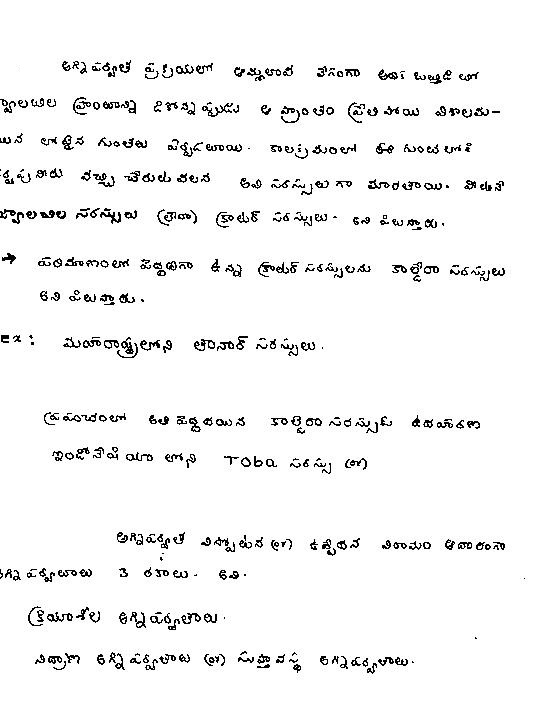 అగ్నిపర్వత ప్రక్రియలో ఆమ్లలావా వేగంగా అధిక ఒత్తిడి తో
జ్వాలబిల ప్రాంతాన్ని ఢీకొన్నప్పుడు ఆ ప్రాంతం ప్రేలి పోయి విశాలమ-
యిన లోతైన గుంతలు ఏర్పడతాయి. కాలక్రమంలో ఈ గుంటలోకి
వర్షపునీరు వచ్చి చేరుట వలన అవి సరస్సులు గా మారతాయి. వీటినే
జ్వాలబిల సరస్సులు (లేదా) క్రాటర్ సరస్సులు. అని పిలుస్తారు.
→ పరిమాణంలో పెద్దవిగా ఉన్న క్రాటర్ సరస్సులను కాల్డెరా సరస్సులు
అని పిలుస్తారు.
Ex: మహారాష్ట్రలోని లూనార్ సరస్సులు.
ప్రపంచంలో అతి పెద్దదయిన కాల్డెరా సరస్సుకి ఉదాహరణ
ఇండోనేషియా లోని Toba సరస్సు (or)
అగ్నిపర్వత విస్ఫోటన (or) ఉద్భేదన విరామం ఆధారంగా
అగ్నిపర్వతాలు 3 రకాలు. అవి.
క్రియాశీల అగ్నిపర్వతాలు.
నిద్రాణ అగ్నిపర్వతాలు (or) సుప్తావస్థ అగ్నిపర్వతాలు.